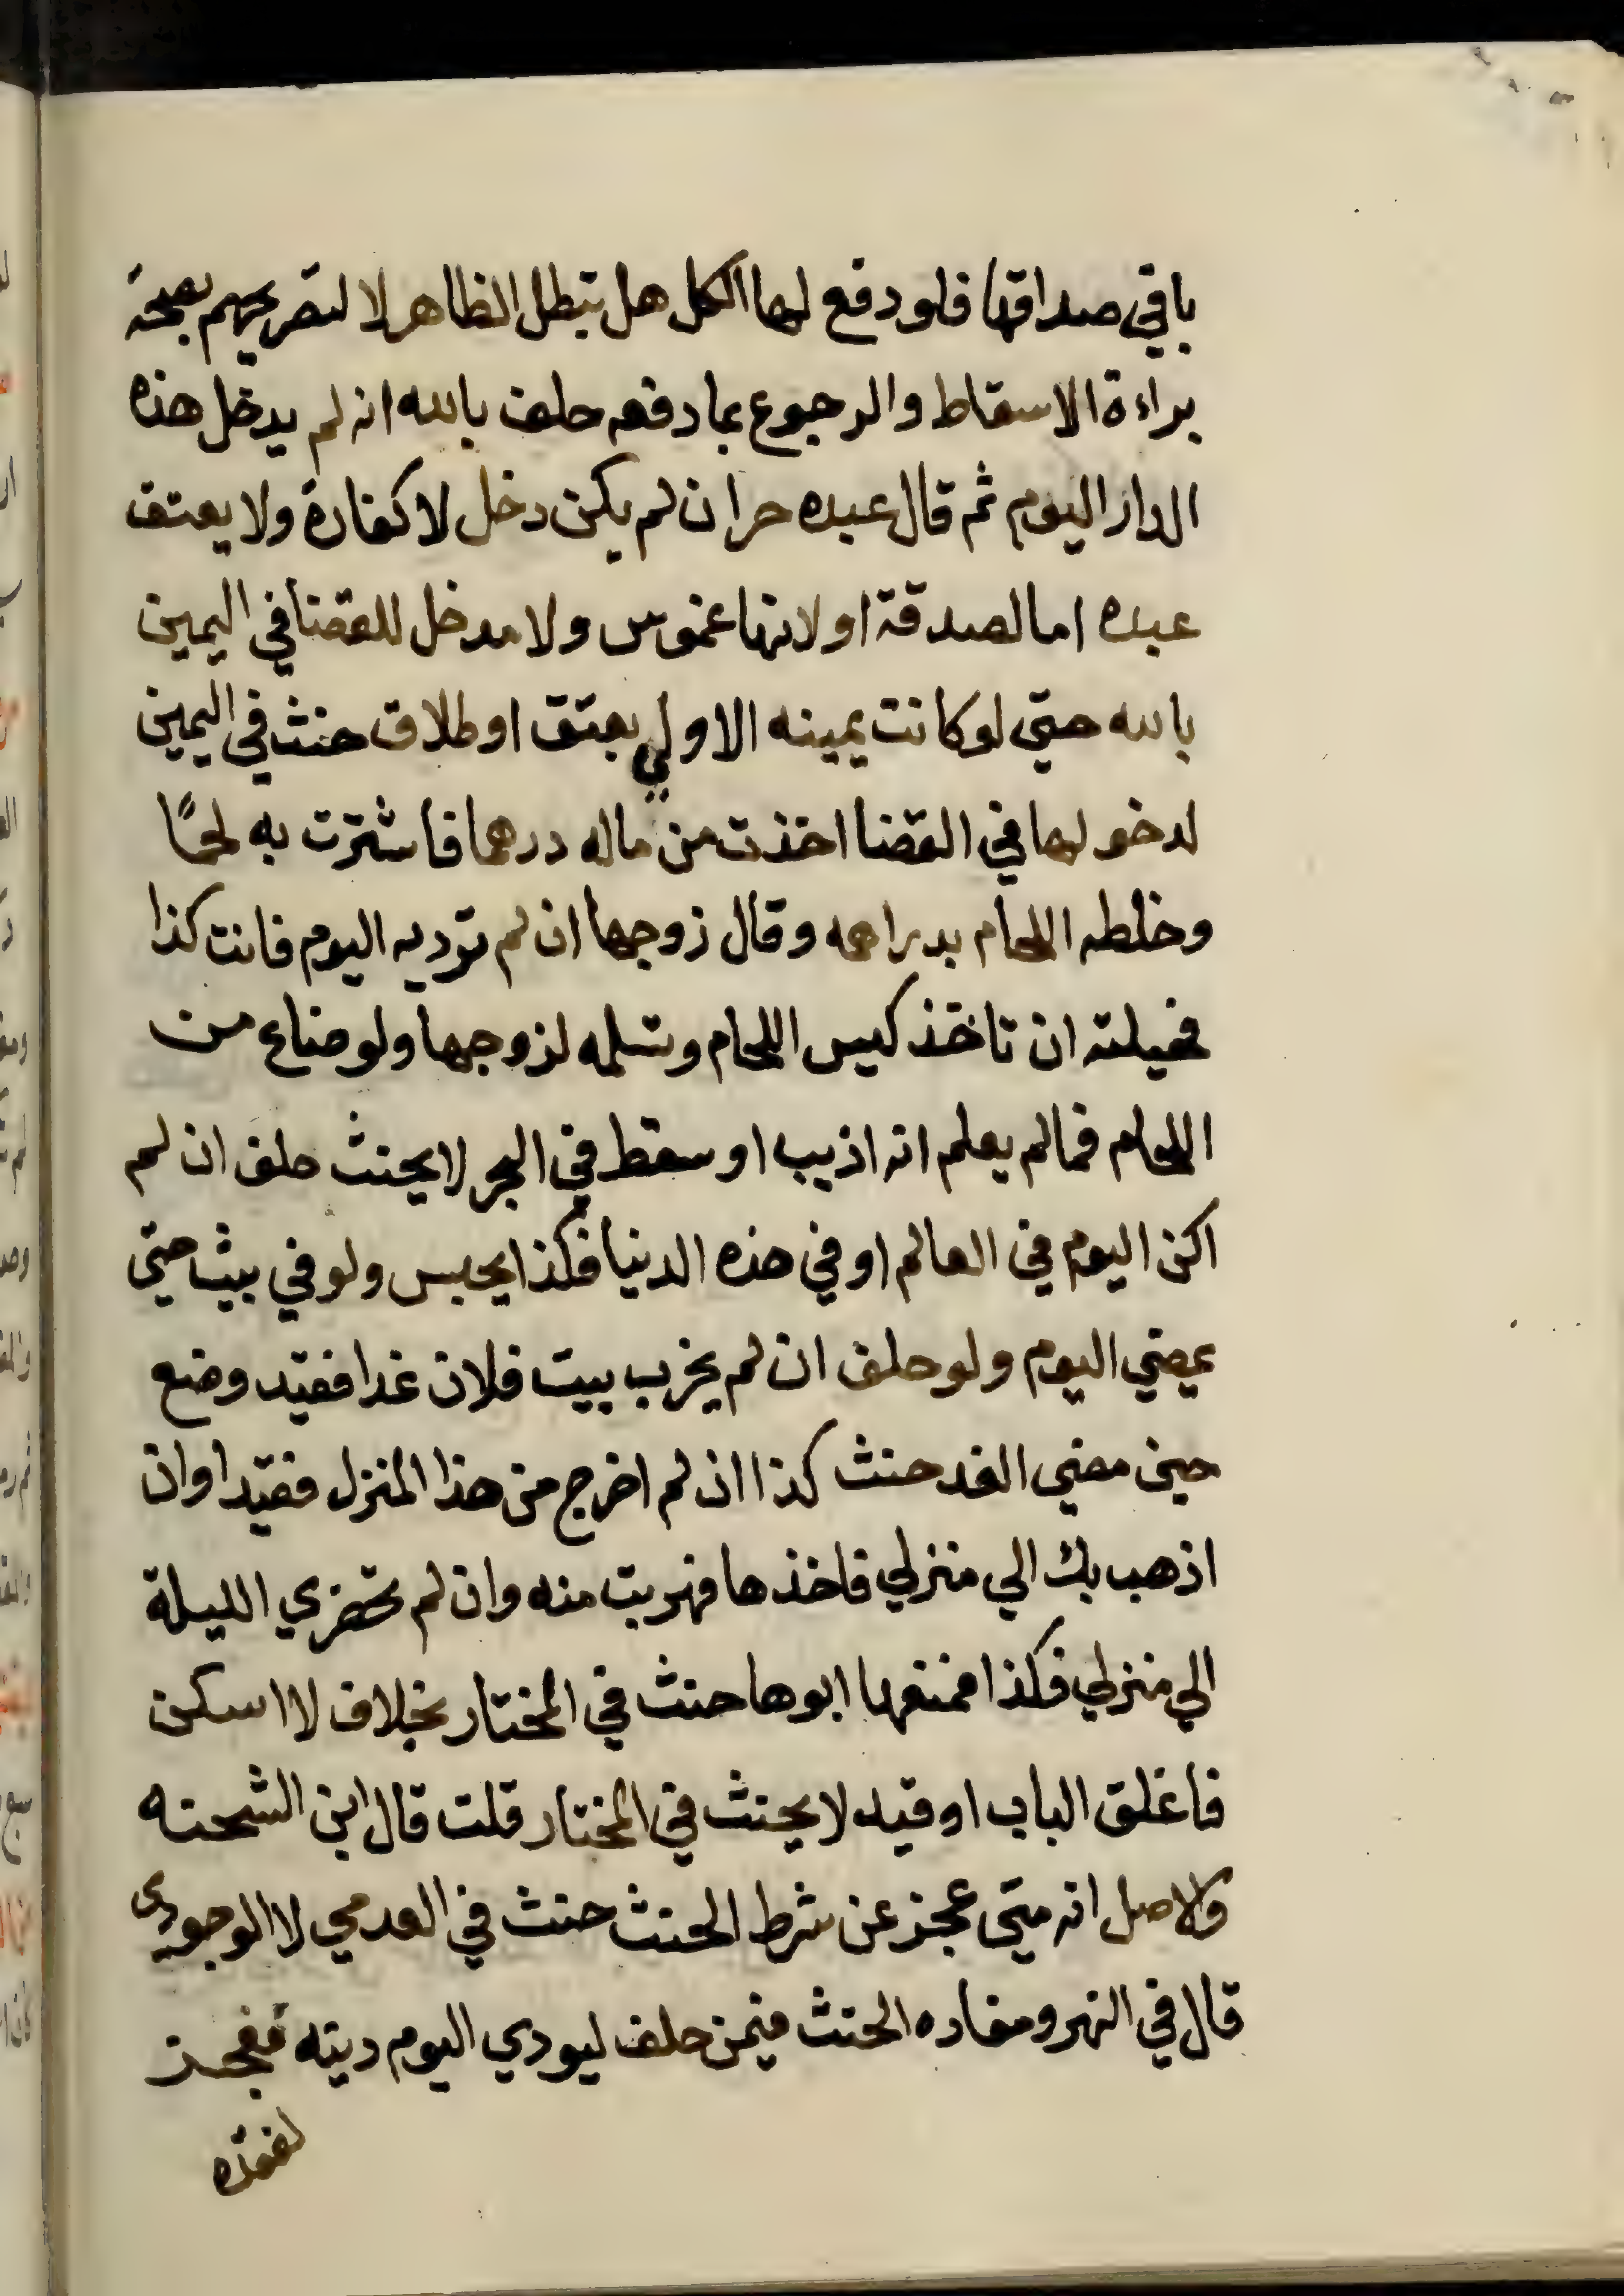 باقي صداقها فلو دفع لها الكل هل تبطل الظاهر لا لتصريحهم بصحة
براءة الاسقاط والرجوع بما دفعه حلف بالله انه لم يدخل هذه
الدار اليوم ثم قال عبده حر ان لم يكن دخل لا كفارة ولا يعتق
عبده اما لصدقة او لانها غموس ولا مدخل للقضا في اليمين
بالله حتي لو كانت يمينه الاولي بعتق او طلاق حنث في اليمين
لدخولها في القضا اخذت من ماله درهما فاشترت به لحمًا
وخلطه اللحام بدراهمه وقال زوجها ان لم توديه اليوم فانت كذا
فحيلته ان تاخذ كيس اللحام وتسلمه لزوجها ولو ضاع من
اللحام فما لم يعلم انه اذيب او سقط في البحر لا يحنث حلف ان لم
اكن اليوم في العالم او في هذه الدنيا فكذا يحبس ولو في بيث حتي
يمضي اليوم ولو حلف ان لم يخرب بيت فلان غدا فقيد وضع
حين مضي الغد حنث كذا ان لم اخرج من هذا المنزل فقيد او ان
اذهب بك الي منزلي فاخذها فهربت منه وان لم تحضري الليلة
الي منزلي فكذا فمنعها ابوها حنث في المختار بخلاف لا اسكن
فاغلق الباب او قيد لا يحنث في المختار قلت قال ابن الشحنه
والاصل انه متي عجز عن شرط الحنث حنث في العدمي لا الوجودي
قال في النهر ومفاده الحنث فيمن حلف ليودي اليوم دينه فعجز
لفقره